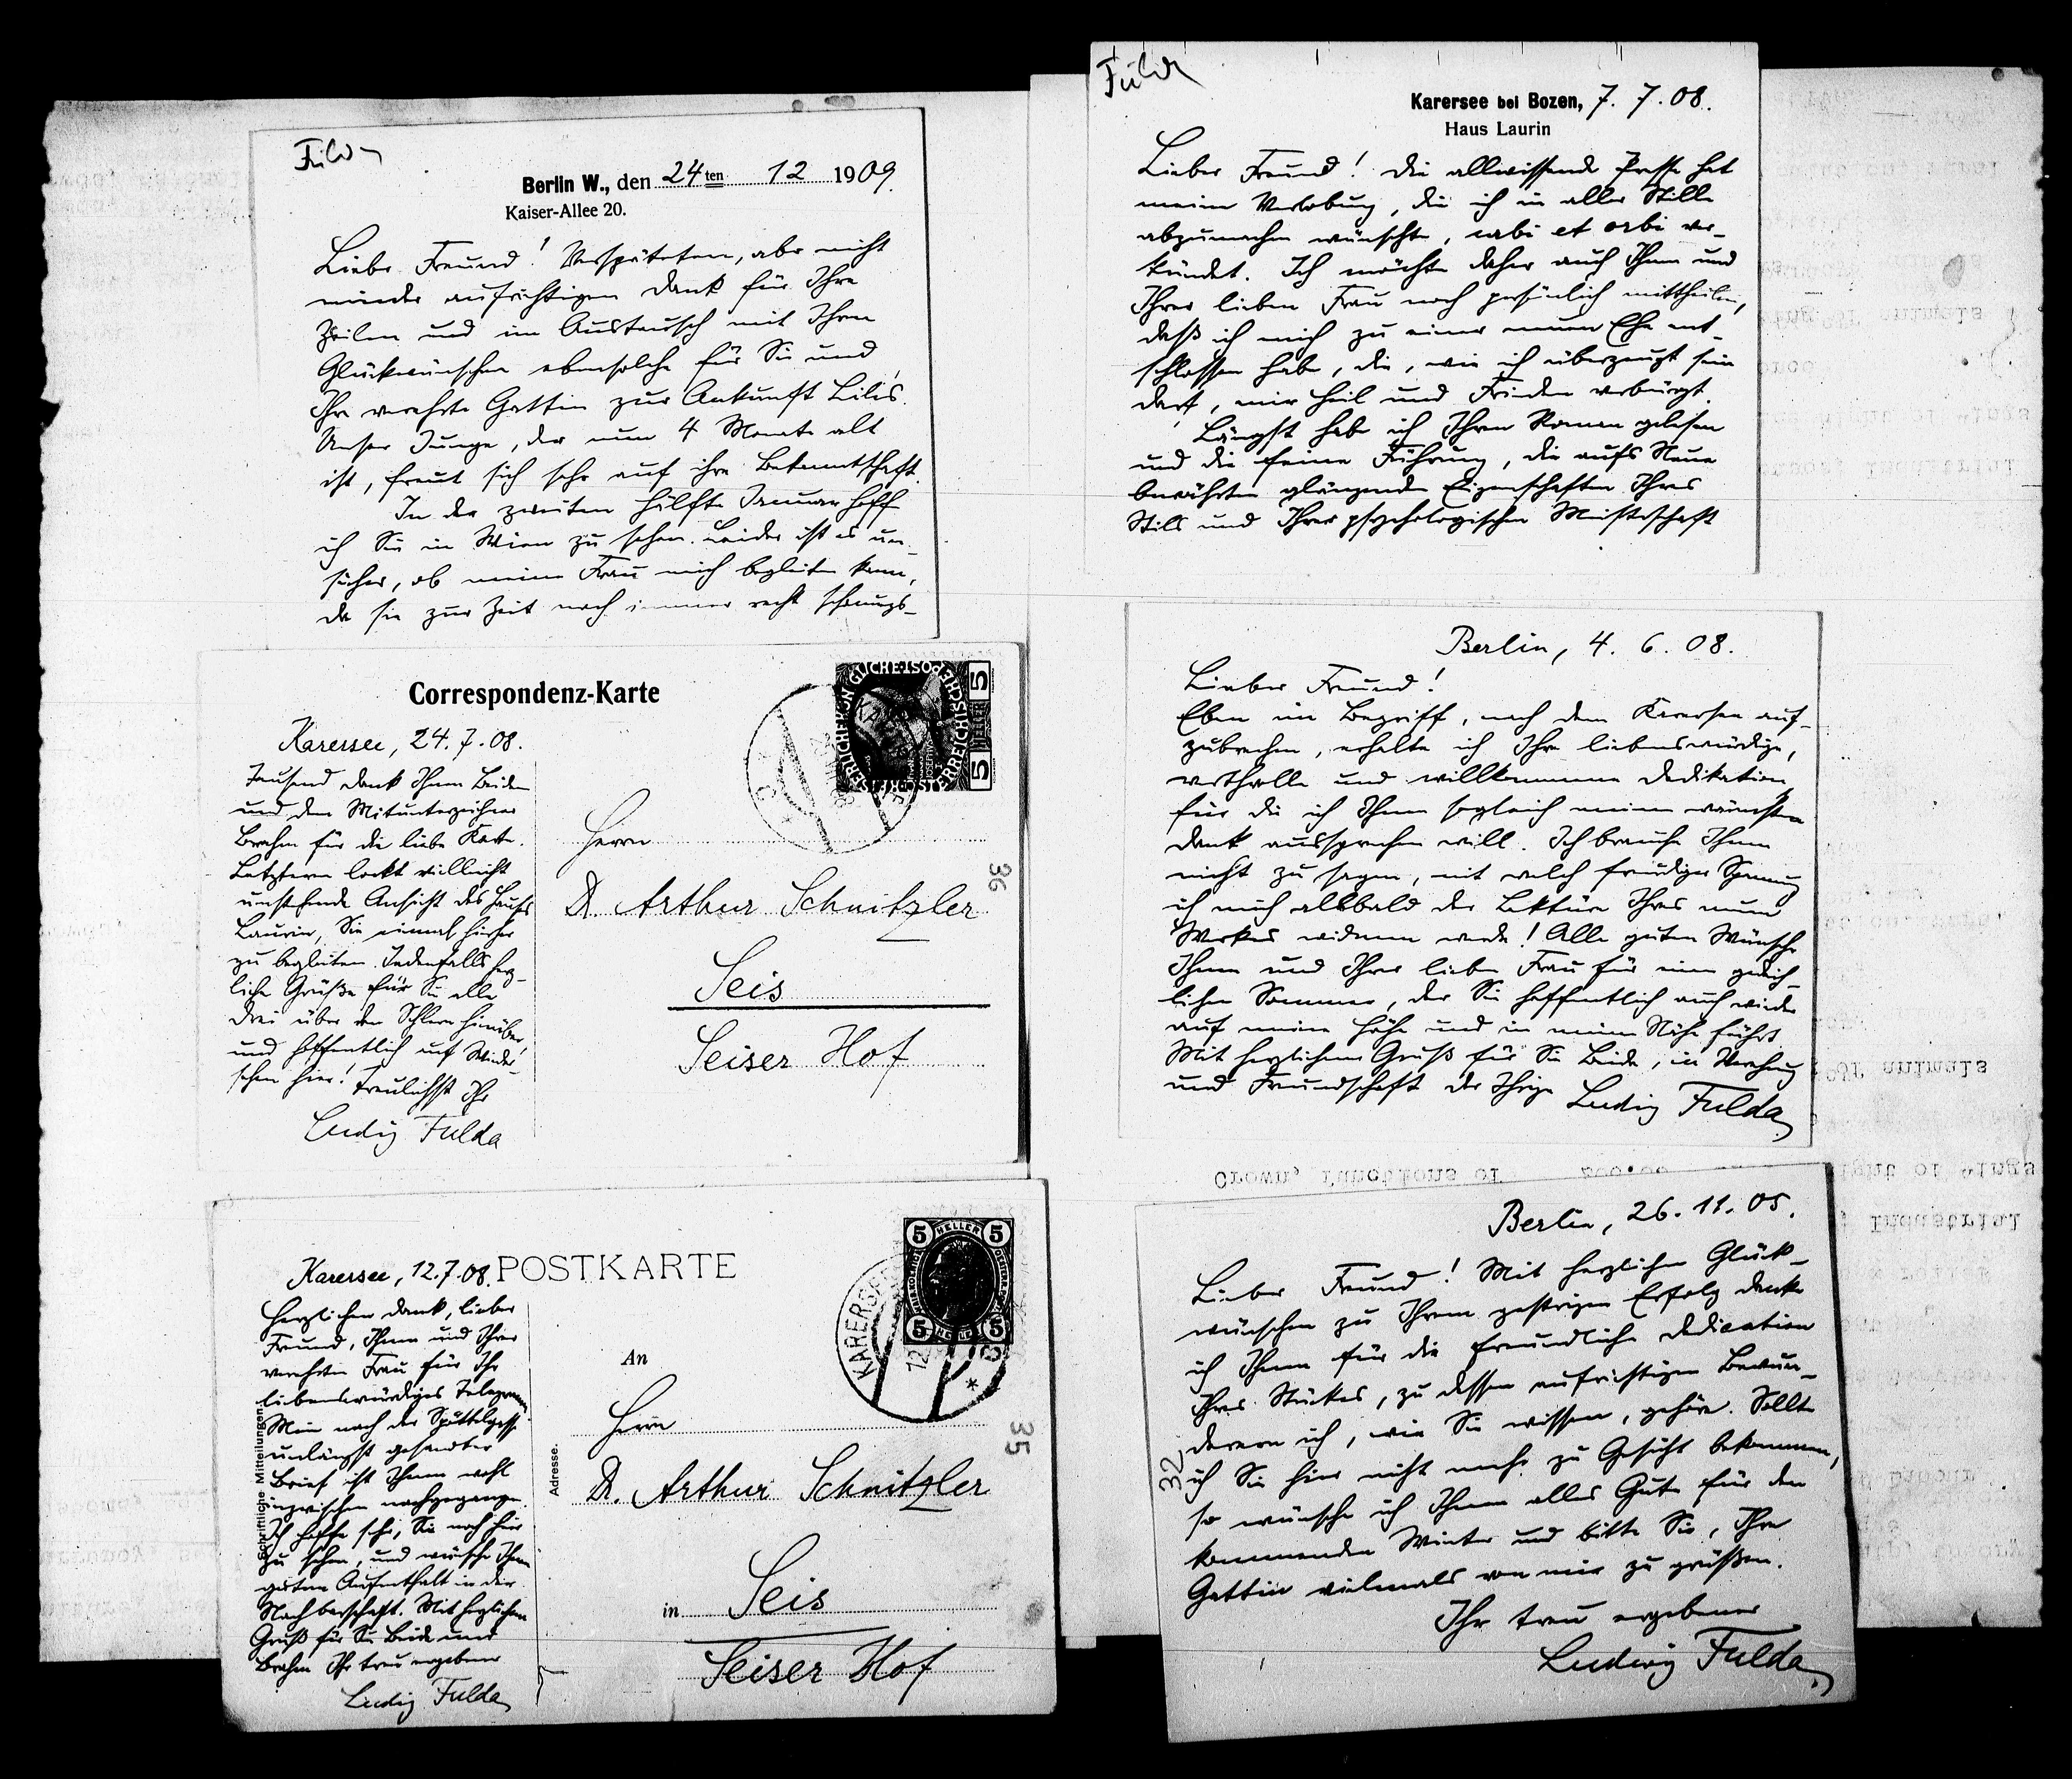 Fulda
Berlin W., den 24ten 12 1909.
Kaiser-Allee 20.
Lieber Freund! Verspäteten, aber nicht
minder aufrichtigen Dank für Ihre
Zeilen und im Austausch mit Ihren
Glückwünschen ebensolche für Sie und
Ihre verehrte Gattin zur Ankunft Lili's.
Unser Junge, der nun 4 Monate alt
ist, freut sich sehr auf ihre Bekanntschaft.
In der zweiten Hälfte Januar hoff
ich Sie in Wien zu sehen. Leider ist es un-
sicher, ob meine Frau mich begleiten kann,
da sie zur Zeit noch immer recht schonungs-
Correspondenz-Karte
Karersee, 24.7.08.
Tausend Dank Ihnen Beiden
und dem Mitunterzeichner
Brahm für die liebe Karte.
Letzteren lockt vielleicht
umstehende Ansicht des Hauses
Laurin, Sie einmal hierher
zu begleiten. Jedenfalls herz-
liche Grüße für Sie alle
Drei über den Schlern hinüber,
und hoffentlich auf Wieder-
sehen hier! Treulichst Ihr
Ludwig Fulda
5 HELLER 5
Herrn
Dr. Arthur Schnitzler
Seis
Seiser Hof
36
POSTKARTE
Karersee, 12.7.08.
Herzlichen Dank, lieber
Freund, Ihnen und Ihrer
verehrten Frau für Ihr
liebenswürdiges Telegramm.
Mein nach der Spöttelgasse
unlängst gesandter
Brief ist Ihnen wohl
inzwischen nachgegangen.
Ich hoffe sehr, Sie noch hier
zu sehen, und wünsche Ihnen
guten Aufenthalt in der
Nachbarschaft. Mit herzlichem
Gruß für Sie Beide und
Brahm Ihr treu ergebener
Ludwig Fulda
Schriftliche Mitteilungen
Adresse.
5 HELLER 5
KARERSEE
An
Herrn
Dr. Arthur Schnitzler
in Seis
Seiser Hof
35
Fulda
Karersee bei Bozen, 7. 7. 08.
Haus Laurin
Lieber Freund! Die allwissende Presse hat
meine Verlobung, die ich in aller Stille
abzumachen wünschte, urbi et orbi ver-
kündet. Ich möchte daher auch Ihnen und
Ihrer lieben Frau noch persönlich mittheilen,
daß ich mich zu einer neuen Ehe ent-
schlossen habe, die, wie ich überzeugt sein
darf, mir Heil und Frieden verbürgt.
Längst habe ich Ihren Roman gelesen
und die feine Führung, die aufs Neue
bewährten glänzenden Eigenschaften Ihres
Stils und Ihrer psychologischen Meisterschaft
Berlin, 4. 6. 08.
Lieber Freund!
Eben im Begriff, nach dem Karersee auf-
zubrechen, erhalte ich Ihre liebenswürdige,
werthvolle und willkommene Dedikation,
für die ich Ihnen sogleich meinen wärmsten
Dank aussprechen will. Ich brauche Ihnen
nicht zu sagen, mit welch freudiger Spannung
ich mich alsbald der Lektüre Ihres neuen
Werkes widmen werde! Alle guten Wünsche
Ihnen und Ihrer lieben Frau für einen gedeih-
lichen Sommer, der Sie hoffentlich auch wieder
auf meine Höhe und in meine Nähe führt.
Mit herzlichem Gruß für Sie Beide, in Verehrung
und Freundschaft der Ihrige Ludwig Fulda
Berlin, 26. 11. 05.
Lieber Freund! Mit herzlichen Glück-
wünschen zu Ihrem gestrigen Erfolg danke
ich Ihnen für die freundliche Dedication
Ihres Stückes, zu dessen aufrichtigen Bewun-
derern ich, wie Sie wissen, gehöre. Sollte
ich Sie hier nicht mehr zu Gesicht bekommen,
so wünsche ich Ihnen alles Gute für den
kommenden Winter und bitte Sie, Ihre
Gattin vielmals von mir zu grüßen.
Ihr treu ergebener
Ludwig Fulda
32